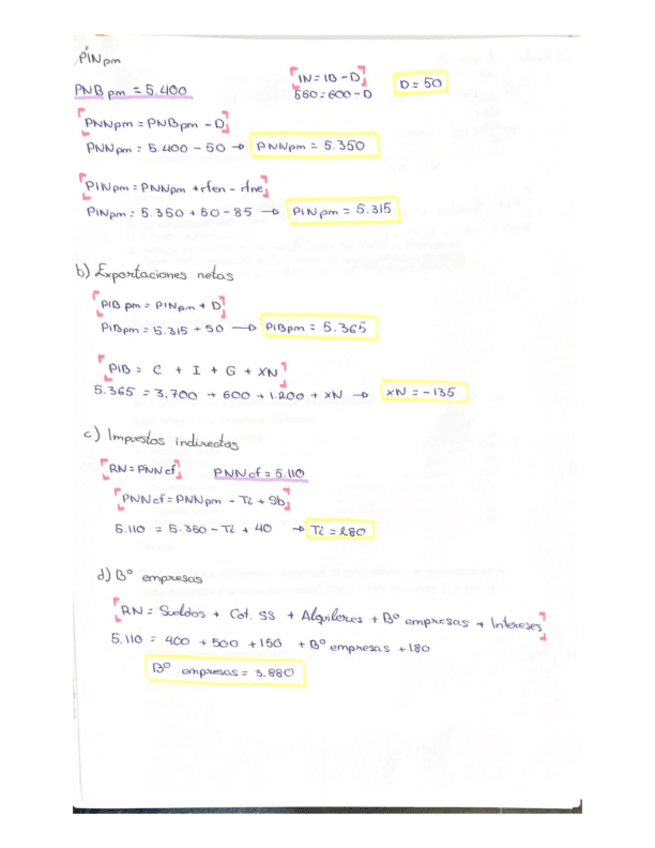 PINpm
[IN = IB - D] D = 50
PNBpm = 5.400 550 = 600 - D
[PNNpm = PNBpm - D]
PNNpm = 5.400 - 50 → PNNpm = 5.350
[PINpm = PNNpm + rfen - rfne]
PINpm = 5.350 + 50 - 85 → PINpm = 5.315
b) Exportaciones netas
[PIB pm = PINpm + D]
PIBpm = 5.315 + 50 → PIBpm = 5.365
[PIB = C + I + G + XN]
5.365 = 3.700 + 600 + 1.200 + XN → XN = -135
c) Impuestos indirectos
[RN = PNNcf] PNNcf = 5.110
[PNNcf = PNNpm - Ti + Sb]
5.110 = 5.350 - Ti + 40 → Ti = 280
d) Bº empresas
[RN = Sueldos + Cot. SS + Alquileres + Bº empresas + Intereses]
5.110 = 400 + 500 + 150 + Bº empresas + 180
Bº empresas = 3.880